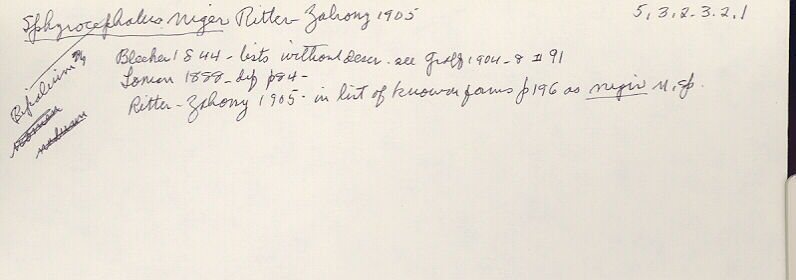 Sphyrocephalus niger Ritter-Zahony 1905
5,3,2-3.2.1
Bipalium
nodum
Bleeker 1844 - lists without descr. see Graff 1904-8 II 91
Loman 1888 - dif p84 -
Ritter-Zahony 1905 - in list of known forms p196 as nigir n.sp.